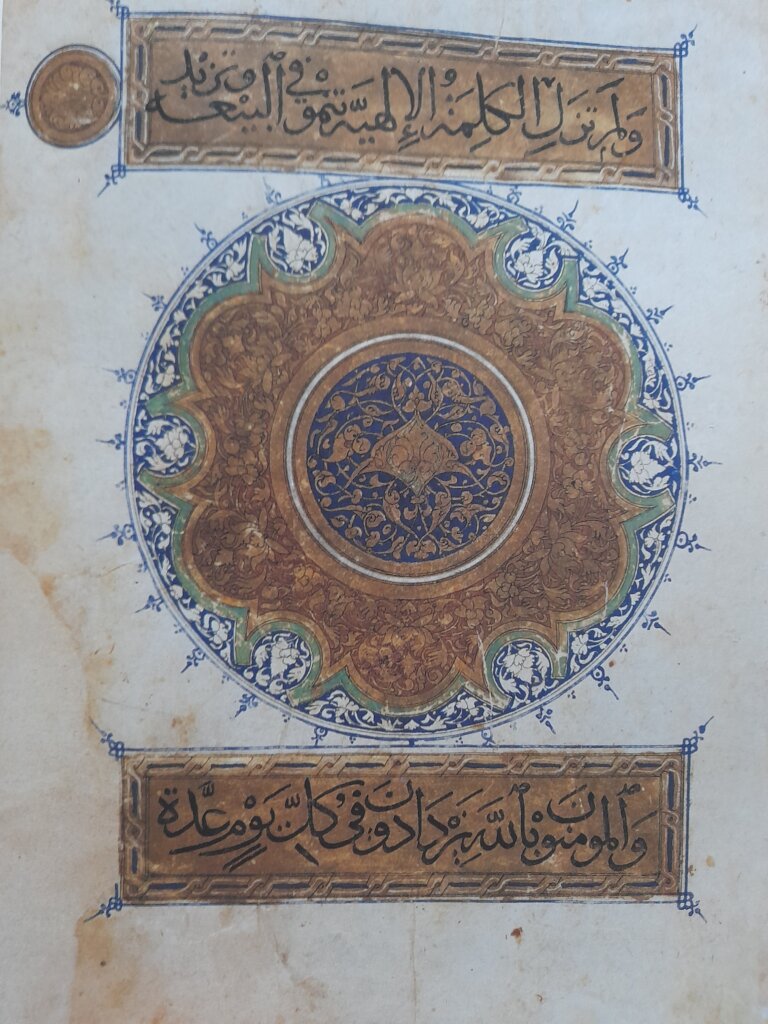 ولم تزل الكلمة الإلهية تنمو في البيعه وتزيد
والمومنون بالله يزدادون في كل يوم عدة